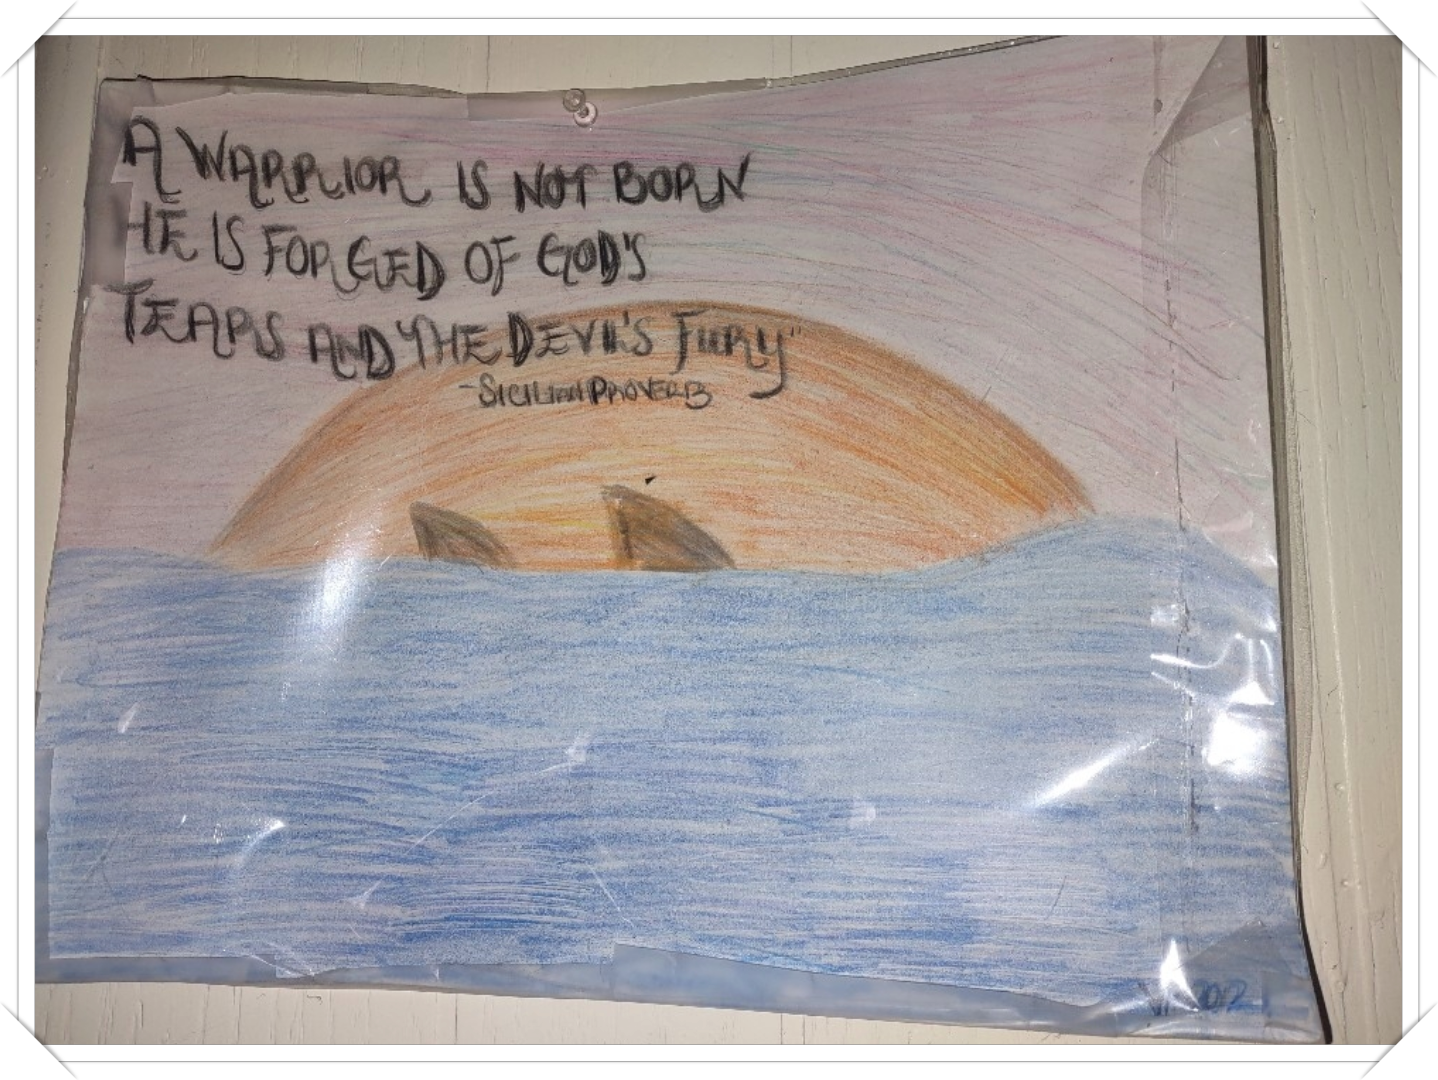 A WARRIOR IS NOT BORN
HE IS FORGED OF GOD'S
TEARS AND THE DEVIL'S FURY"
-SICILIAN PROVERB
2012